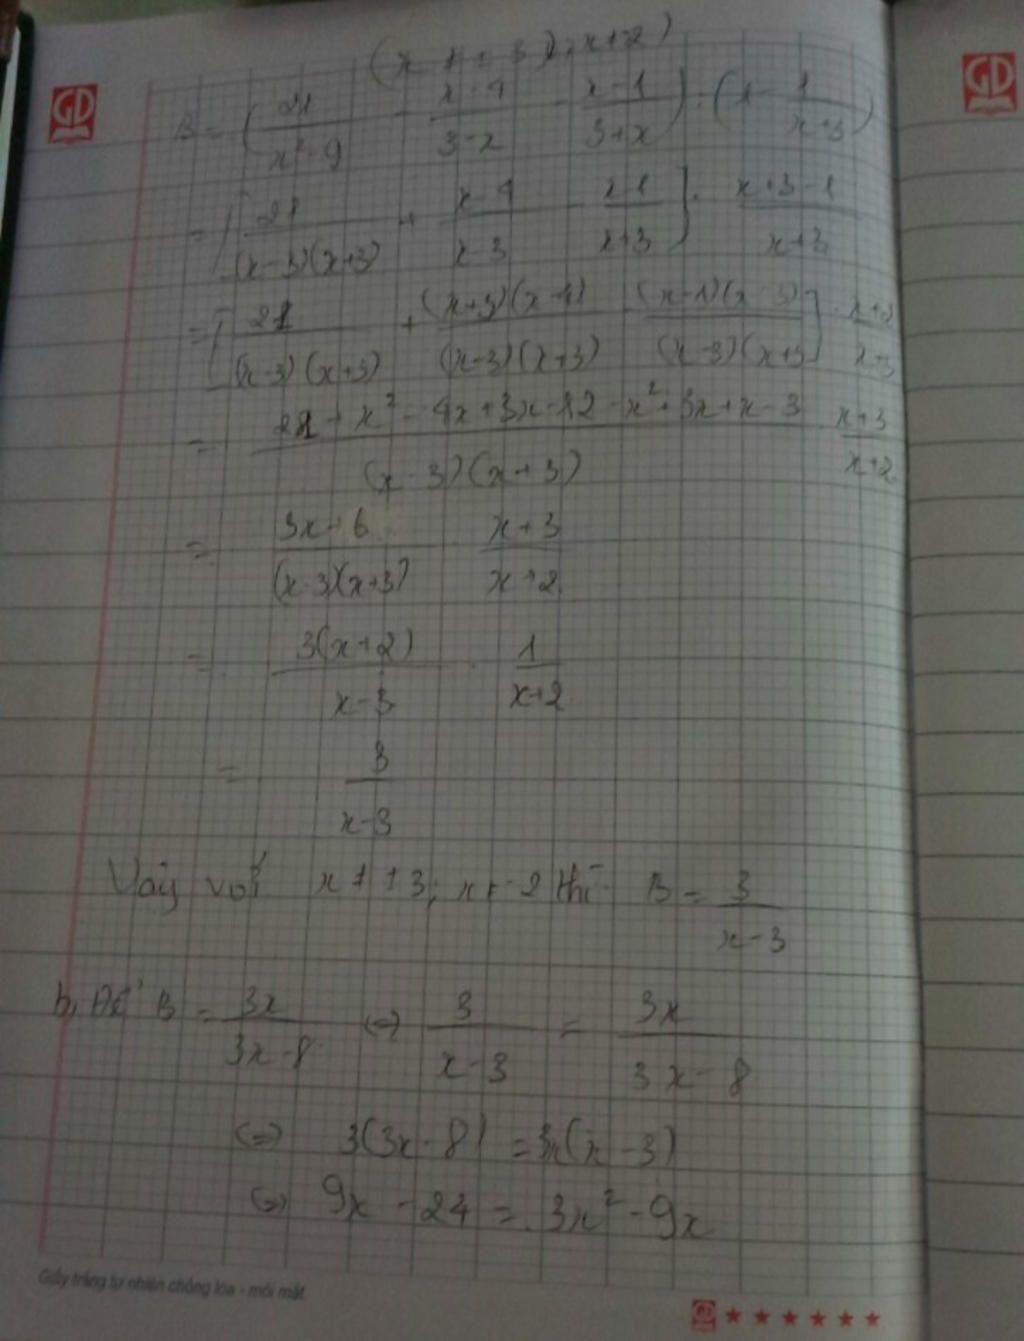 (x ≠ ±3), x ≠ -2)
B = (21/(x² - 9) - (x - 4)/(3 - x) - (x - 1)/(3 + x)) : (1 - 1/(x + 3))
= [21/((x - 3)(x + 3)) + (x - 4)/(x - 3) - (x - 1)/(x + 3)] : (x + 3 - 1)/(x + 3)
= [21/((x - 3)(x + 3)) + ((x + 3)(x - 4))/((x - 3)(x + 3)) - ((x - 1)(x - 3))/((x - 3)(x + 3))] : (x + 2)/(x + 3)
= (21 + x² - 4x + 3x - 12 - x² + 3x + x - 3)/((x - 3)(x + 3)) · (x + 3)/(x + 2)
= (3x + 6)/((x - 3)(x + 3)) · (x + 3)/(x + 2)
= 3(x + 2)/(x - 3) · 1/(x + 2)
= 3/(x - 3)
Vậy với x ≠ ±3; x ≠ -2 thì B = 3/(x - 3)
b, Để B = 3x/(3x - 8) ⇔ 3/(x - 3) = 3x/(3x - 8)
⇔ 3(3x - 8) = 3x(x - 3)
⇔ 9x - 24 = 3x² - 9x
Giấy trắng tự nhiên chống lóa - mỏi mắt
GD
GD
GD